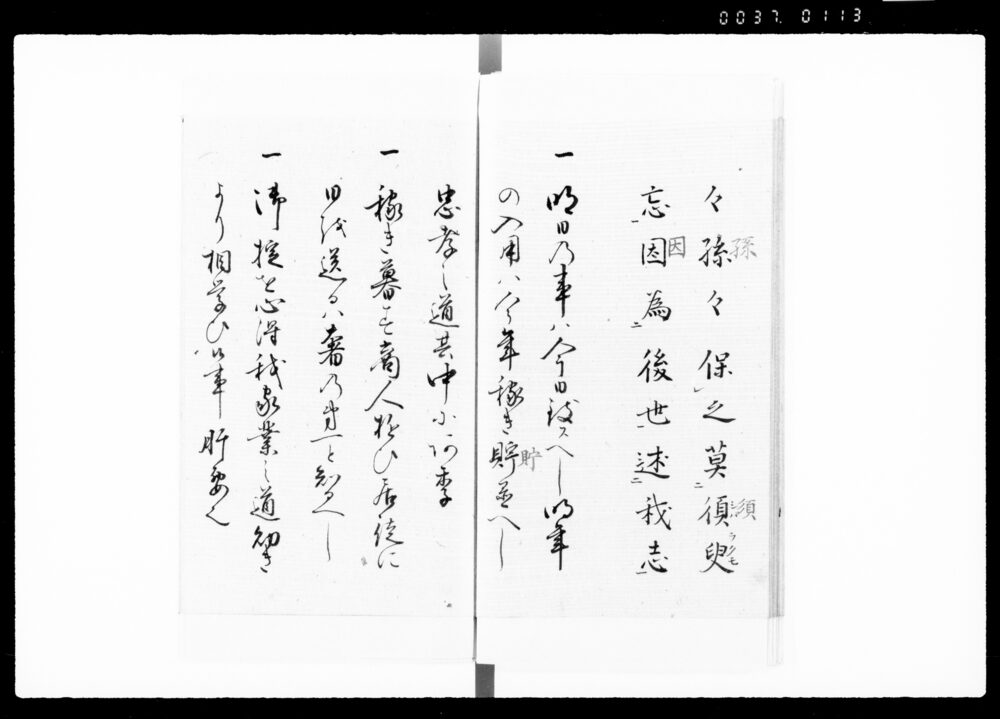 0037. 0113
々孫々保之莫須臾
孫
須
ラクモ
忘因為後世述我志
因
一 明日乃事ハ今日致スへし明年
の入用ハ今年稼き貯置へし
貯
忠孝之道其中ニ
一 稼き暮す商人遊ひ居徒に
日を送るハ奢乃第一と知るへし
一 御掟を心得我家業之道幼き
より相学ひ候事肝要也